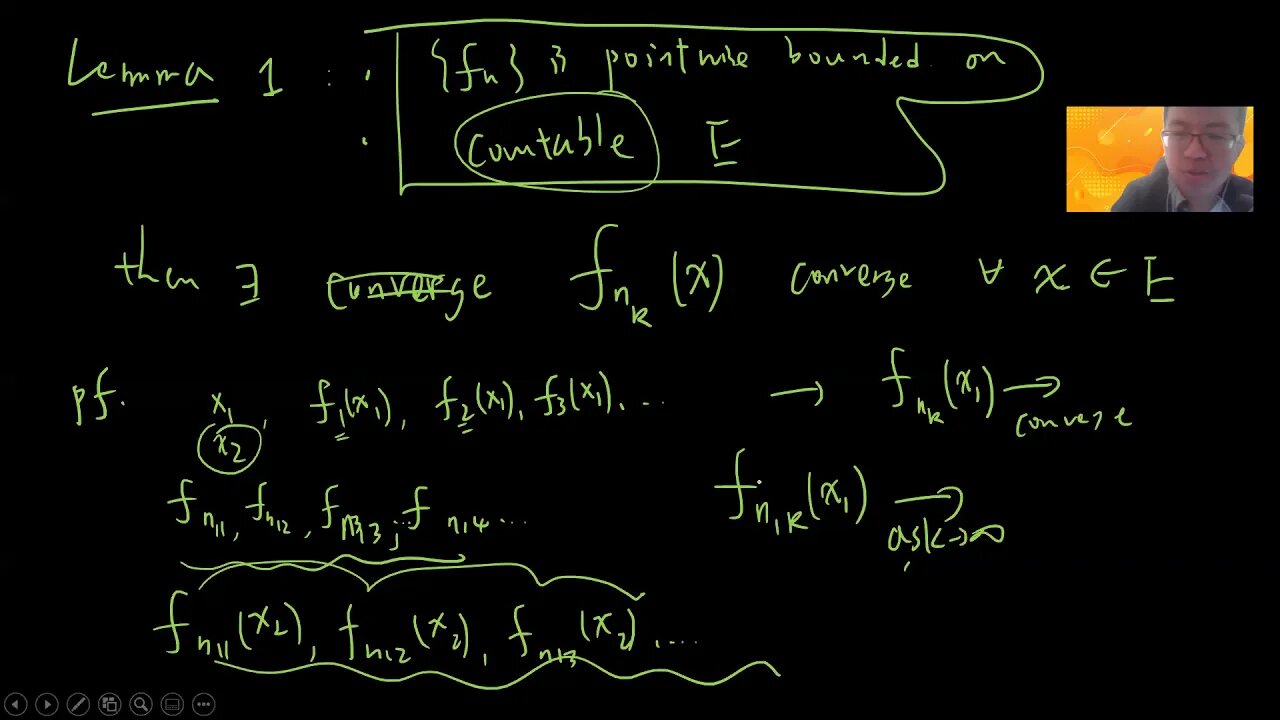 Lemma 1 : · {fn} is pointwise bounded on
· countable E
then ∃ converge f_{n_k}(x) converge ∀ x ∈ E
pf. x_1, f_1(x_1), f_2(x_1), f_3(x_1), ... → f_{n_k}(x_1) → converge
x_2
f_{n_{11}}, f_{n_{12}}, f_{n_{13}}, f_{n_{14}} ... f_{n_{1k}}(x_1) → as k→∞
f_{n_{11}}(x_2), f_{n_{12}}(x_2), f_{n_{13}}(x_2), ....